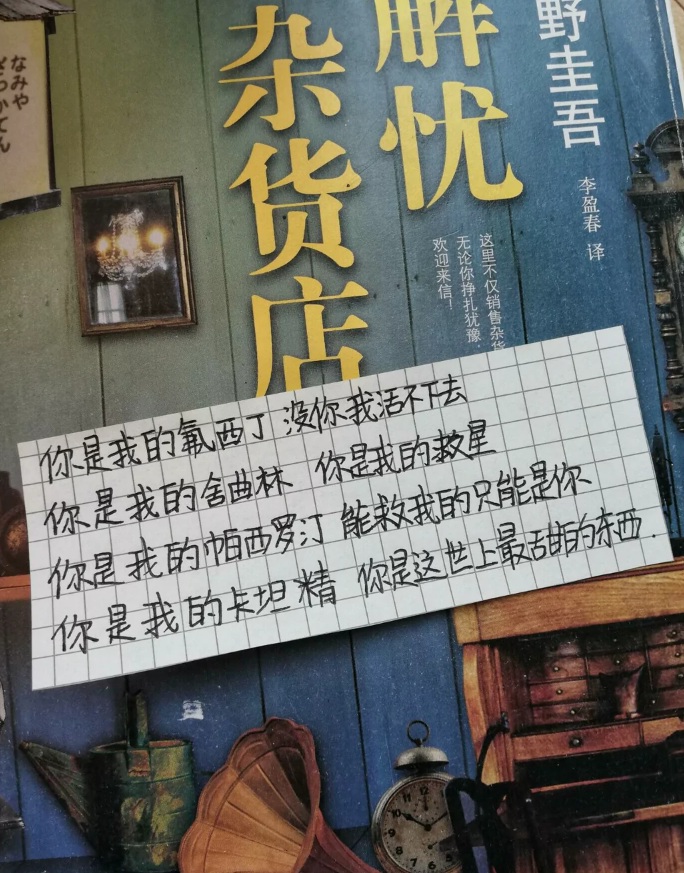 解忧
杂货店
野圭吾
李盈春 译
这里不仅销售杂货
无论你挣扎犹豫，
欢迎来信！
なみや
ざっかてん
你是我的氟西丁 没你我活不下去
你是我的舍曲林 你是我的救星
你是我的帕西罗汀 能救我的只能是你
你是我的卡坦精 你是这世上最甜的东西.